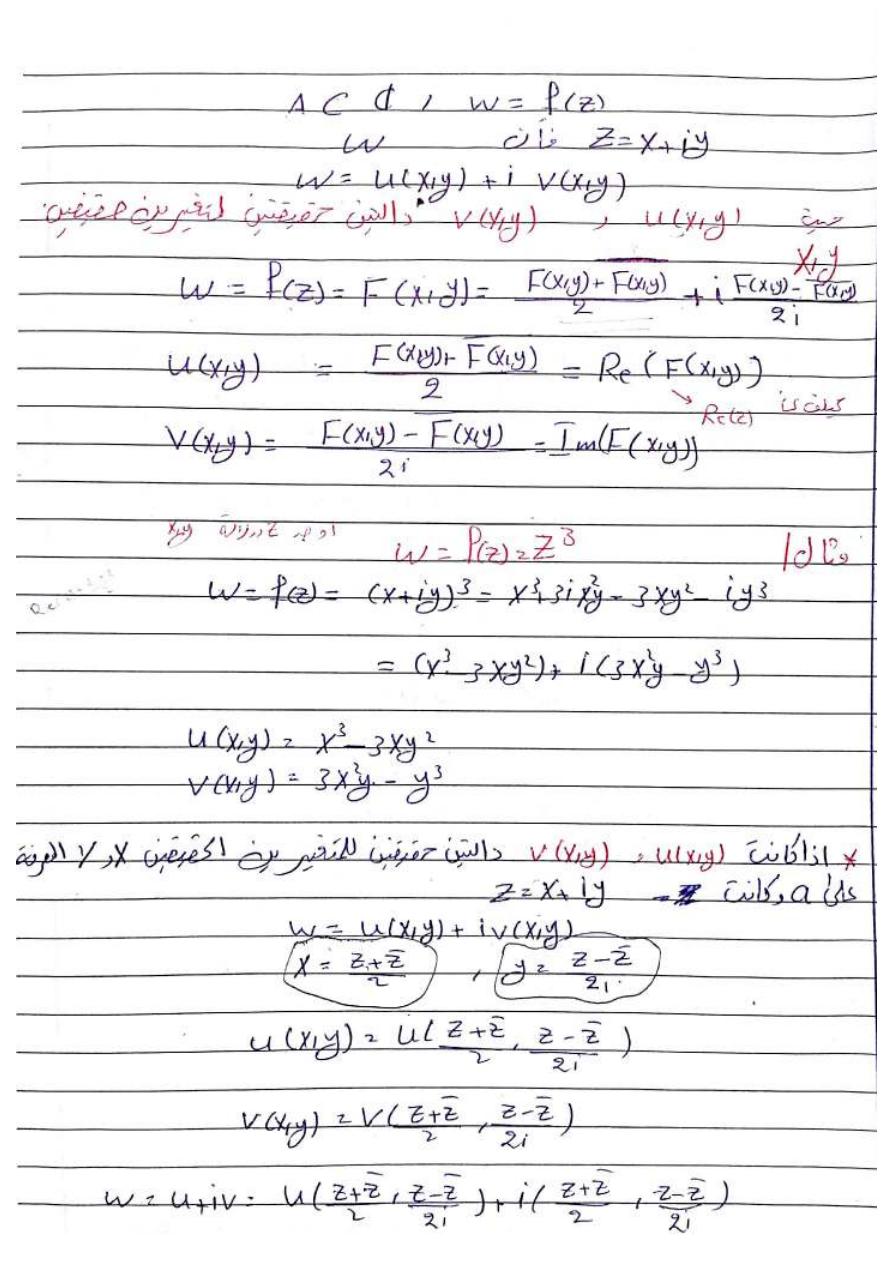 A ⊂ ℂ , w = f(z)
z = x+iy فأن w
w = u(x,y) + i v(x,y)
حيث u(x,y) , v(x,y) دالتين حقيقتين لمتغيرين حقيقين
x,y
w = f(z) = F(x,y) = \frac{F(x,y) + \overline{F(x,y)}}{2} + i \frac{F(x,y) - \overline{F(x,y)}}{2i}
u(x,y) = \frac{F(x,y) + \overline{F(x,y)}}{2} = Re(F(x,y))
Re(z)
v(x,y) = \frac{F(x,y) - \overline{F(x,y)}}{2i} = Im(F(x,y))
مثال1/ w = f(z) = z^3 اوجد x,y
w = f(z) = (x+iy)^3 = x^3 + 3ix^2y - 3xy^2 - iy^3
= (x^3 - 3xy^2) + i(3x^2y - y^3)
u(x,y) = x^3 - 3xy^2
v(x,y) = 3x^2y - y^3
* اذا كانت u(x,y) , v(x,y) دالتين حقيقتين للمتغيرين الحقيقين x , y المعرفة
على a وكانت z = x+iy
w = u(x,y) + iv(x,y)
x = \frac{z+\bar{z}}{2} , y = \frac{z-\bar{z}}{2i}
u(x,y) = u(\frac{z+\bar{z}}{2}, \frac{z-\bar{z}}{2i})
v(x,y) = v(\frac{z+\bar{z}}{2}, \frac{z-\bar{z}}{2i})
w = u+iv = u(\frac{z+\bar{z}}{2}, \frac{z-\bar{z}}{2i}) + i(\frac{z+\bar{z}}{2}, \frac{z-\bar{z}}{2i})